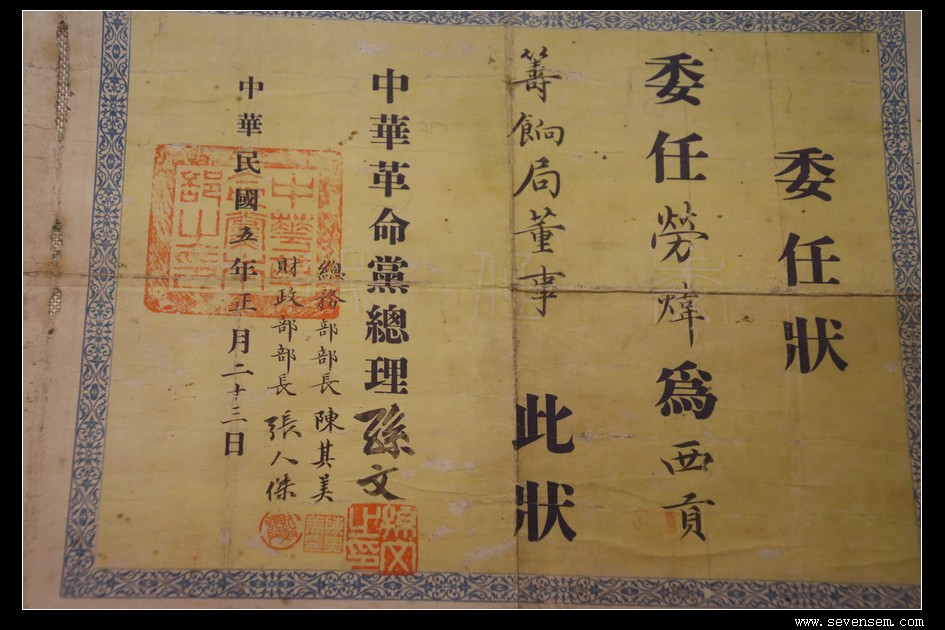 委任狀
委任勞煒爲西貢
籌餉局董事 此狀
中華革命黨總理孫文
總務部部長陳其美
財政部部長張人傑
中華民國五年正月二十三日
孫文之印
www.sevensem.com